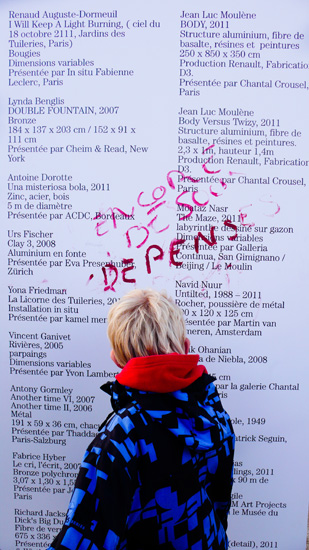 Renaud Auguste-Dormeuil
I Will Keep A Light Burning, ( ciel du
18 octobre 2111, Jardins des
Tuileries, Paris)
Bougies
Dimensions variables
Présentée par In situ Fabienne
Leclerc, Paris
Lynda Benglis
DOUBLE FOUNTAIN, 2007
Bronze
184 x 137 x 203 cm / 152 x 91 x
111 cm
Présentée par Cheim & Read, New
York
Antoine Dorotte
Una misteriosa bola, 2011
Zinc, acier, bois
5 m de diamètre
Présentée par ACDC, Bordeaux
Urs Fischer
Clay 3, 2008
Aluminium en fonte
Présentée par Eva Presenhuber,
Zürich
Yona Friedman
La Licorne des Tuileries, 2011
Installation in situ
Présentée par kamel men
Vincent Ganivet
Rivières, 2005
parpaings
Dimensions variables
Présentée par Yvon Lambert
Antony Gormley
Another time VI, 2007
Another time II, 2006
Métal
191 x 59 x 36 cm, chac
Présentée par Thaddae
Paris-Salzburg
Fabrice Hyber
Le cri, l'écrit, 2007
Bronze polychrom
3,07 x 1,30 x 1,5
Présentée par J
Paris
Richard Jacks
Dick's Big Du
Fibre de verr
675 x 336 x
Présentée
Jean Luc Moulène
BODY, 2011
Structure aluminium, fibre de
basalte, résines et peintures
250 x 850 x 350 cm
Production Renault, Fabricatio
D3.
Présentée par Chantal Crousel,
Paris
Jean Luc Moulène
Body Versus Twizy, 2011
Structure aluminium, fibre de
basalte, résines et peinture.
2,3 x 1m, hauteur 1,4m
Production Renault, Fabrication
D3.
Présentée par Chantal Crousel,
Paris
Moataz Nasr
The Maze, 2011
labyrinthe dessiné sur gazon
Dimensions variables
Présentée par Galleria
Continua, San Gimignano /
Beijing / Le Moulin
Navid Nuur
Untilted, 1988 – 2011
Rocher, poussière de métal
100 x 120 x 125 cm
Présentée par Martin van
meren, Amsterdam
k Ohanian
a de Niebla, 2008
ar la galerie Chantal
Paris
ple, 1949
atrick Seguin,
lings, 2011
x 90 m de
gile
M Art Projects
le Musée du
(detail), 2011
ENCORE
DE
DEPENSES